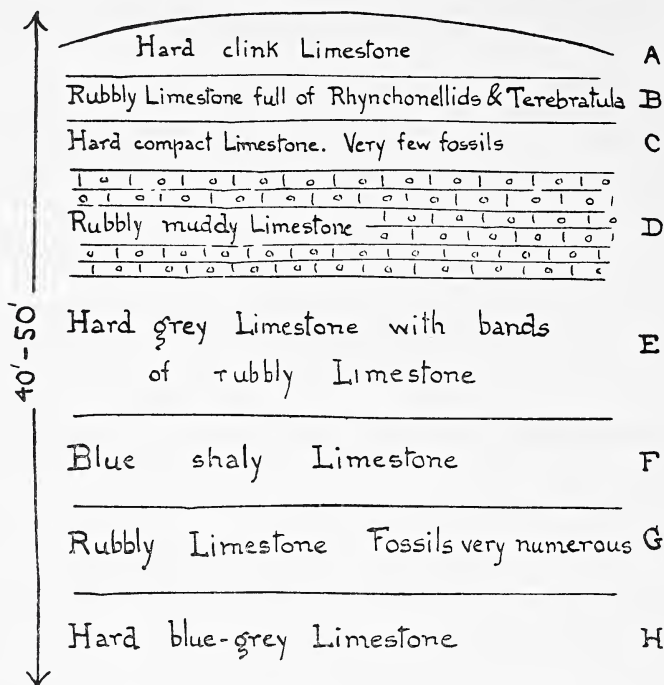 Hard clink Limestone A
Rubbly Limestone full of Rhynchonellids & Terebratula B
Hard compact Limestone. Very few fossils C
Rubbly muddy Limestone D
40'-50'
Hard grey Limestone with bands
of rubbly Limestone E
Blue shaly Limestone F
Rubbly Limestone Fossils very numerous G
Hard blue-grey Limestone H